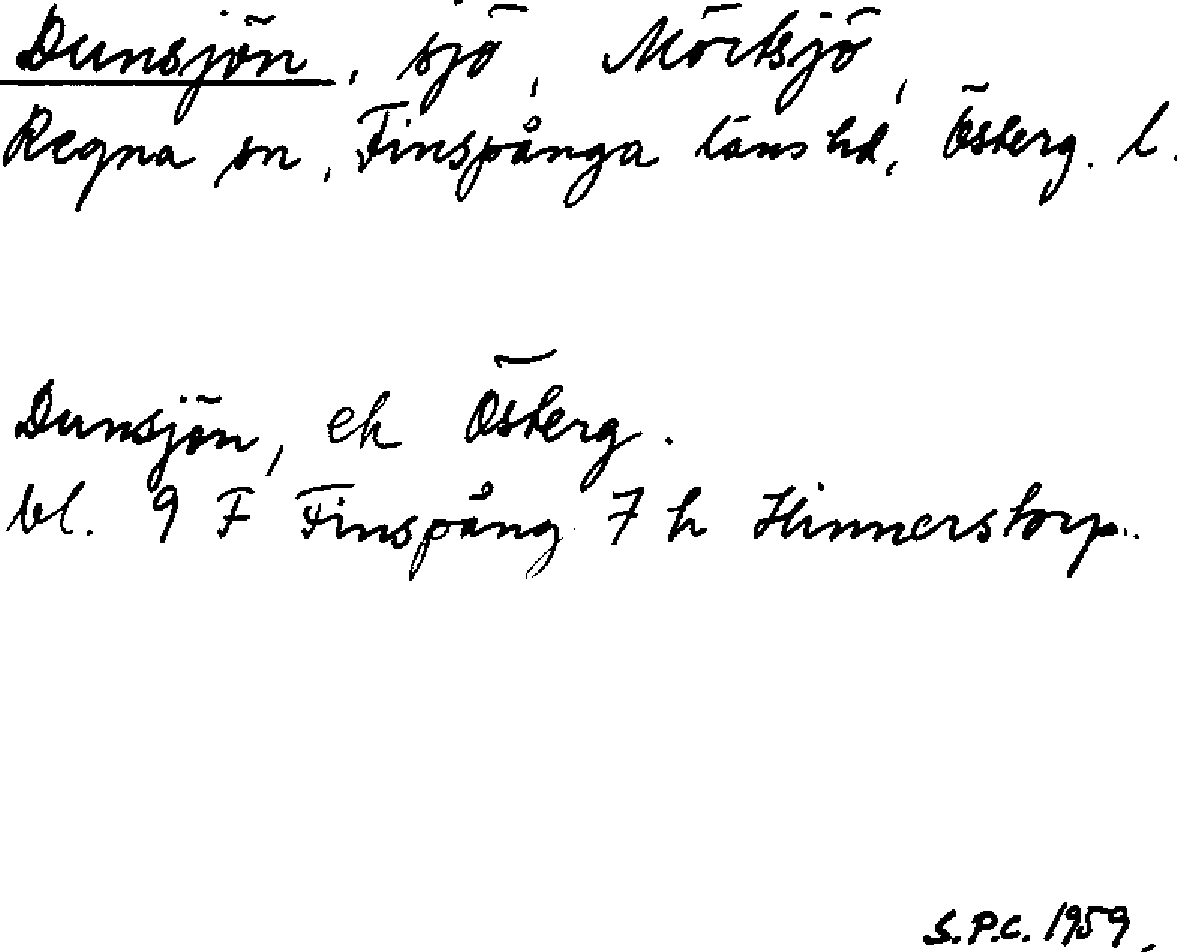 Dunsjön, sjö, Mörtsjö,
Regna sn, Finspånga läns hd, Österg. l.
Dunsjön, ek Österg.
bl. 9 F Finspång 7 h Hinnerstorp.
S.P.C. 1959.